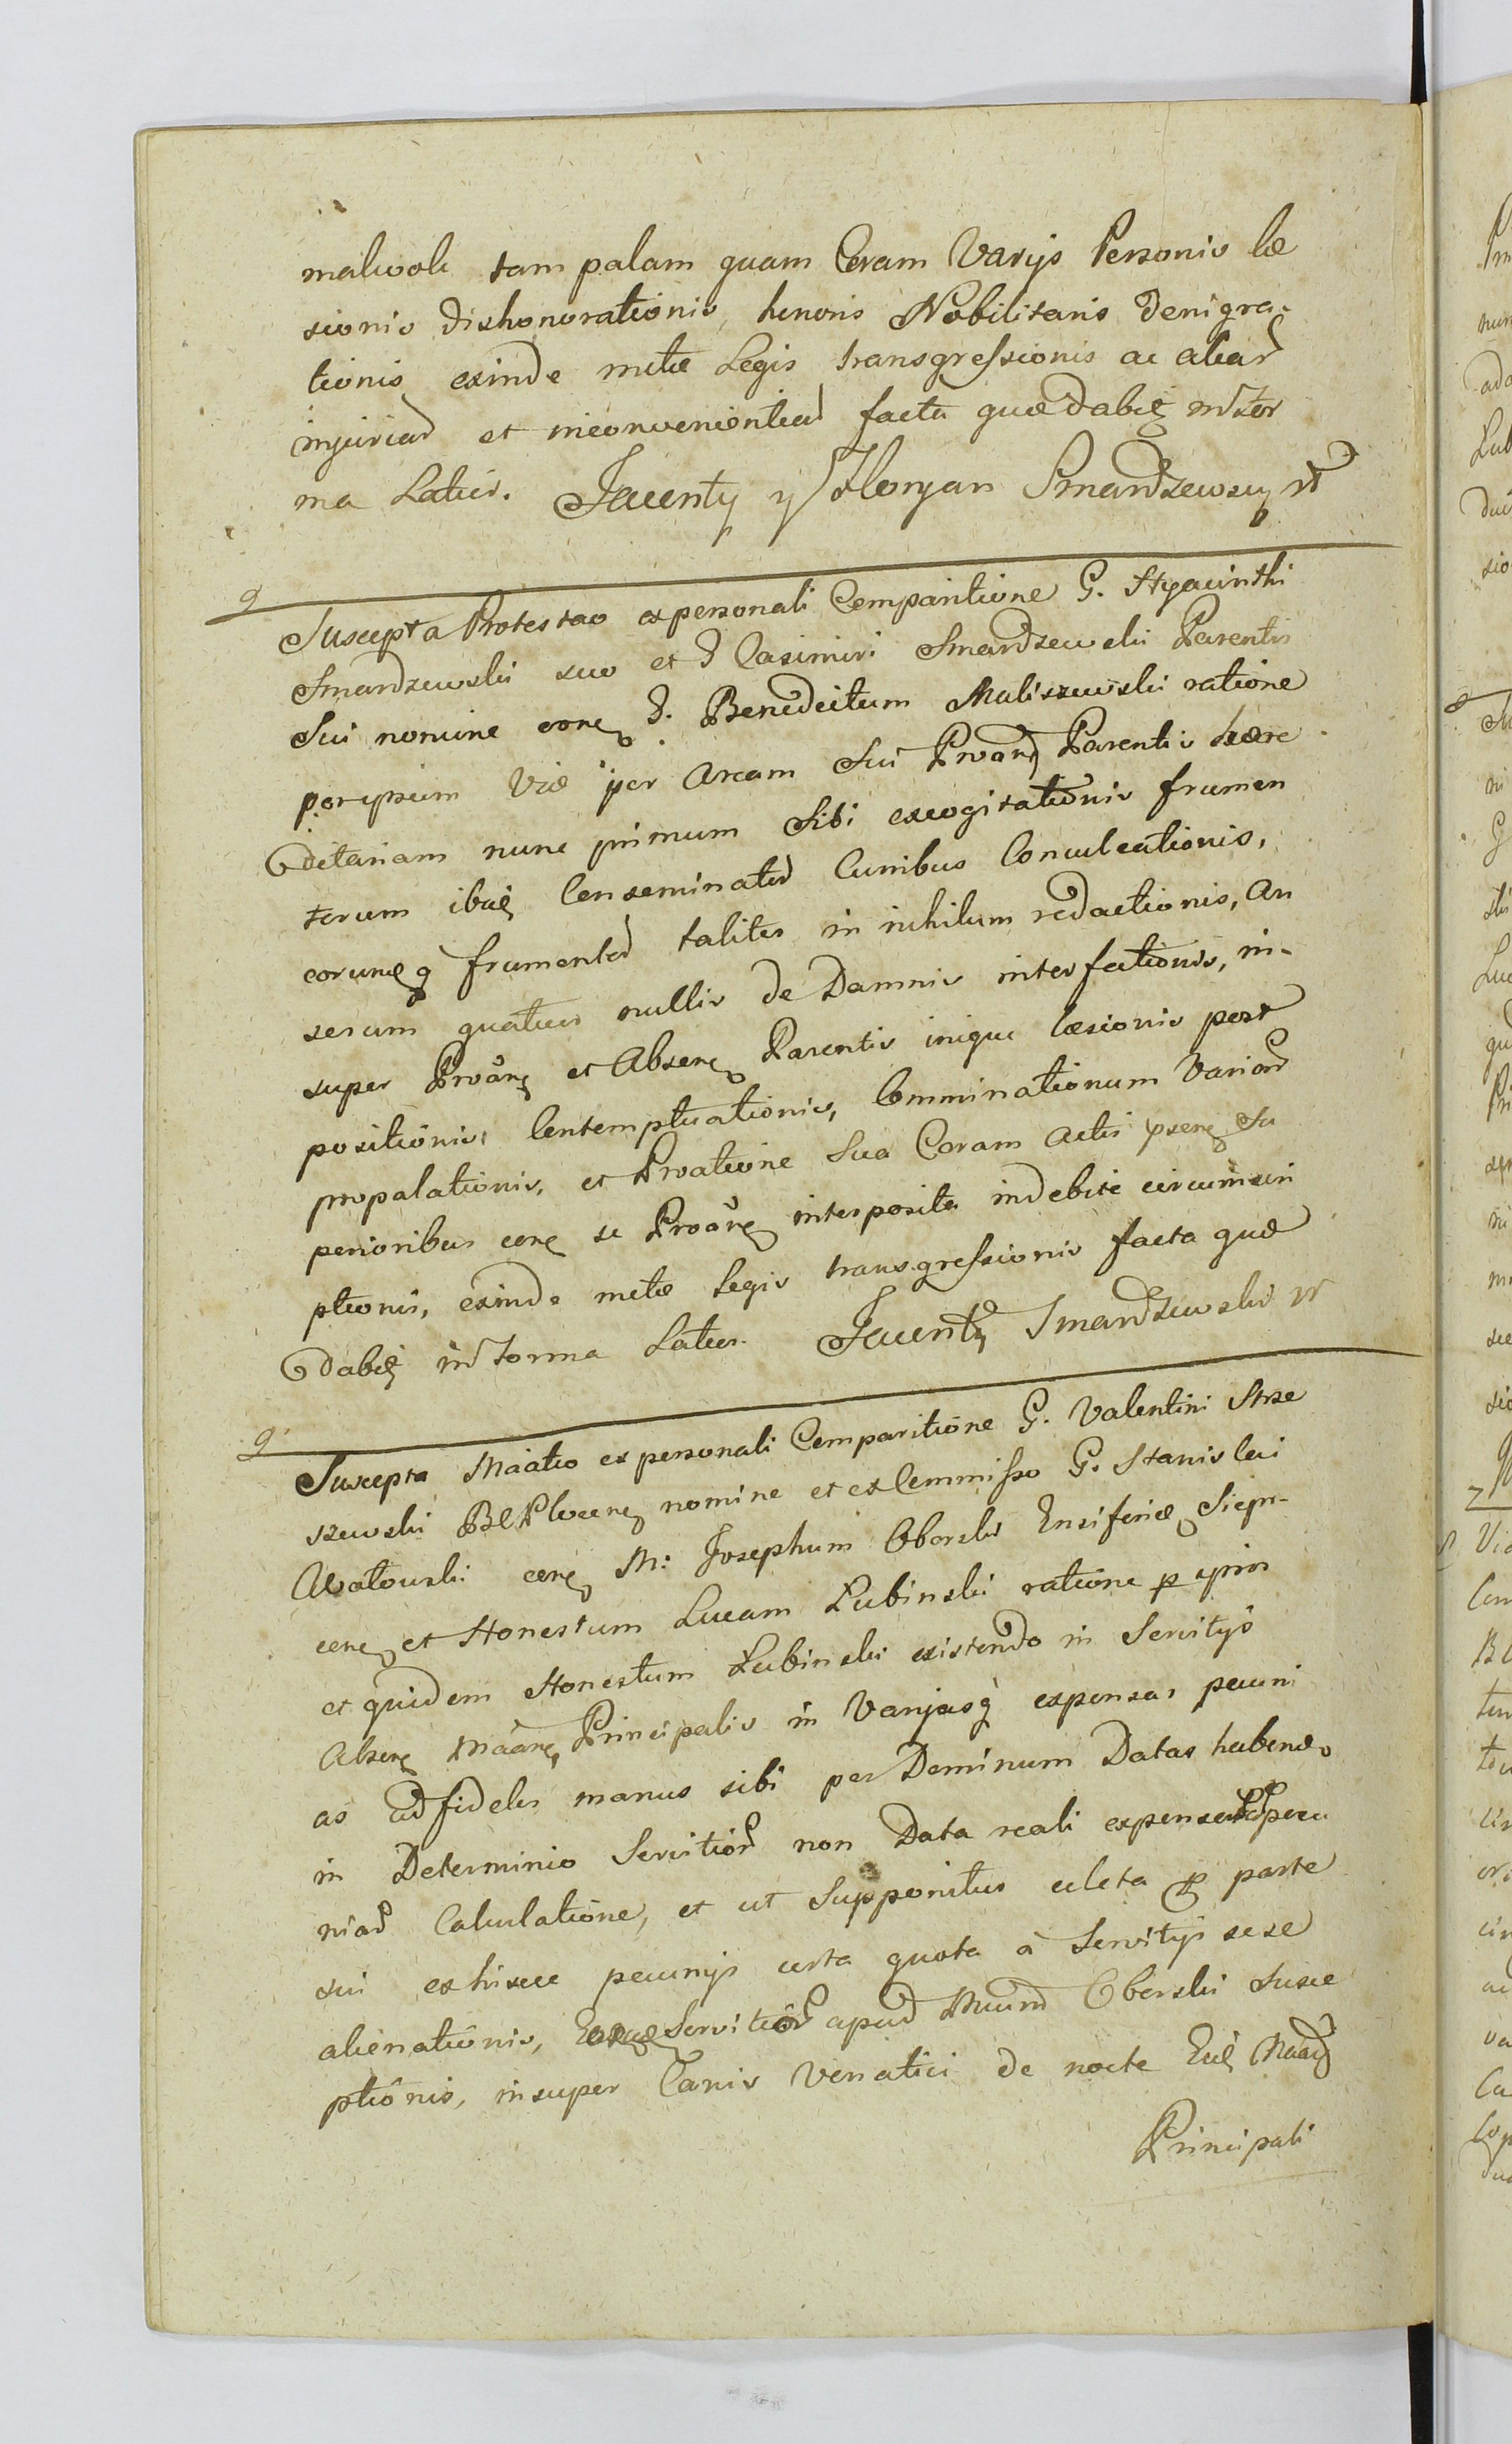 malevole tam palam quam Coram Varijs Personis læ
sionis dishonorationis, honoris Nobilitaris denigra-
tionis exinde metæ Legis transgressionis ac aliar
injuriar et inconvenientiar facta quædabit in for
ma Latius. Jacenty y Floryan Smardzewscy
Suscepta Protestao ex personali Comparitione G. Hyacinthi
Smardzewski suo et G Casimiri Smardzewski Parentis
Sui nomine con G. Benedictum Maliszewski ratione
per ipsum Viæ per Aream Sui Proan Parentis Hære
ditariam nunc primum Sibi excogitationis frumen
torum ibid Conseminator Curribus Conculcationis,
eorumq frumentor taliter in nihilum redactionis, An
serum quatuor nullis de Damnis interfectionis, in-
super Proan et Absen Parentis inique læsionis post
positionis, Contemptuationis, Comminationum Varior
propalationis, et Proatione Sua Coram Actis psen Su
perioribus con se Proan interposita indebite circumscri
ptionis, exinde metæ Legis transgressionis facta quæ
dabit in forma Latius. Jacenty Smardzewski
Suscepta Maatio ex personali Comparitione G. Valentini Strze
szewski BCPlocen nomine et ex Commisso G. Stanislai
con M: Josephum Oborski Ensiferidæ Siepr-
cen et Honestum Lucam Lubinski ratione p ipsos
et quidem Honestum Lubinski existendo in Servitijs
Absen Maan Principalis in Varjasq expensas pecuni
as ad fideles manus sibi per Dominum Datas habendo
in Determinio Servitior non Data reali expensar pecu
niar Calculatione, et ut Supponitur celeta p parte
sui ex hisce pecunijs certa quota à Servitijs sese
alienationis, Servitior apud Oborski Susce
ptionis, insuper Canis Venatici de nocte
Principali